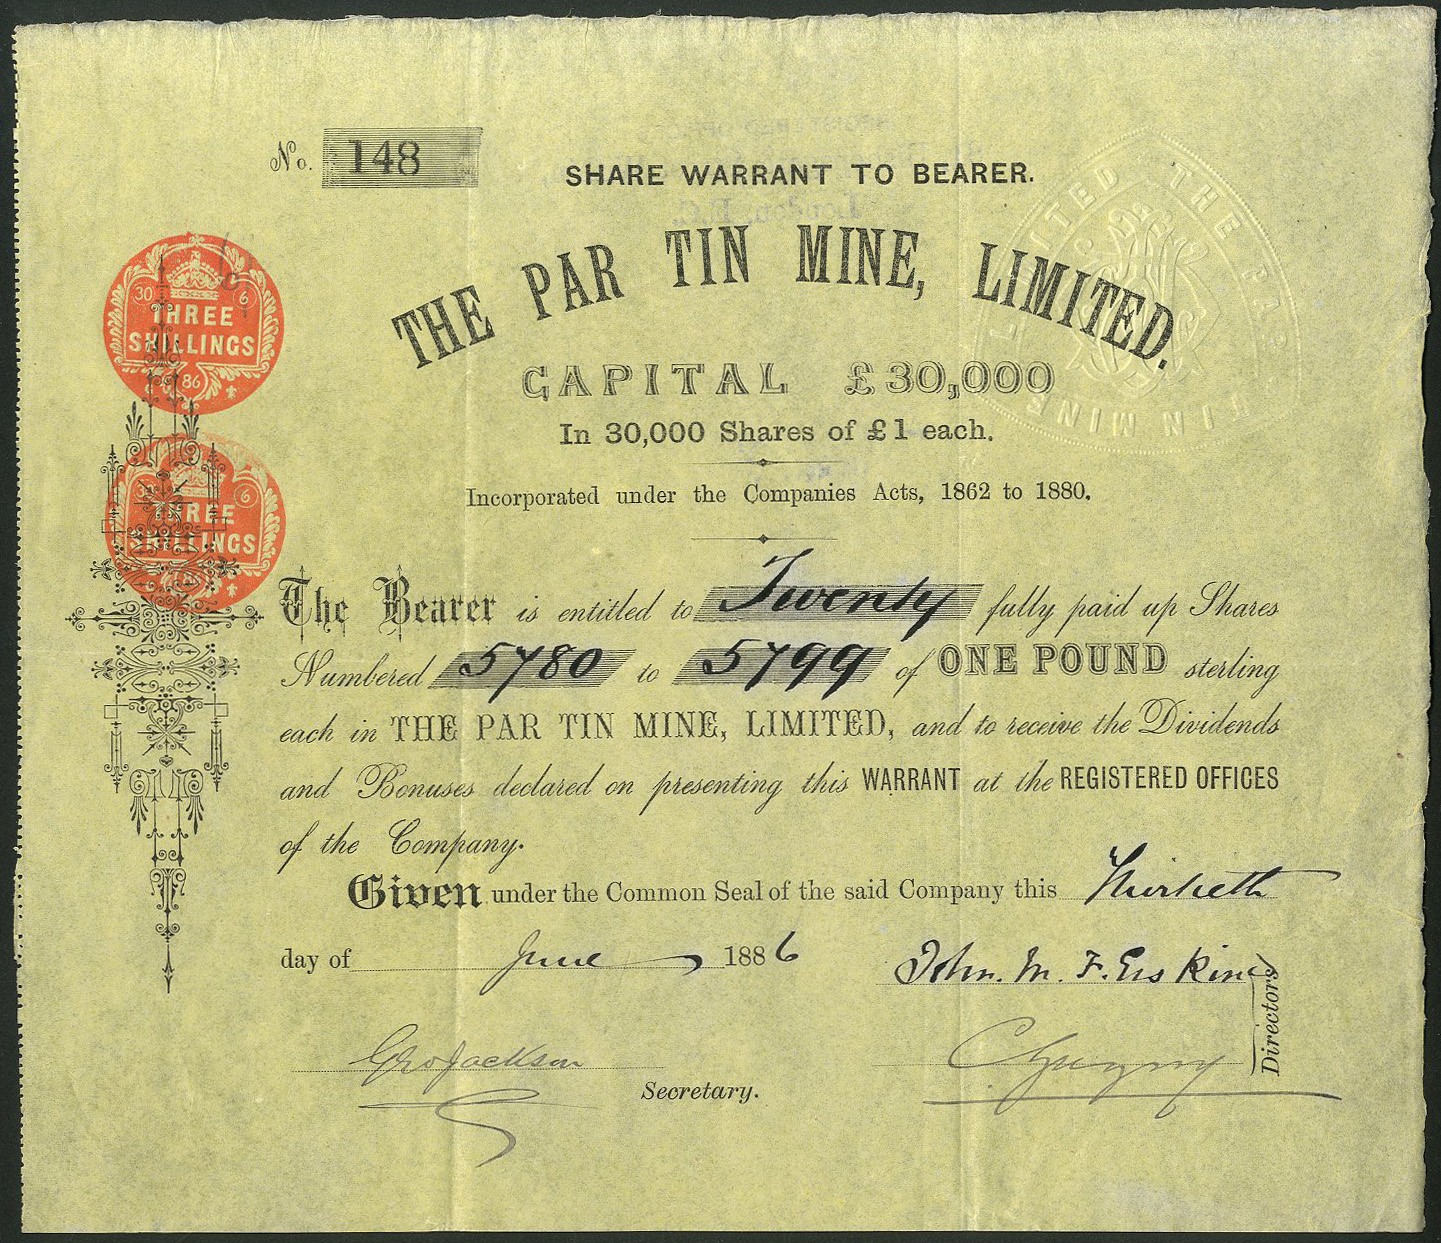 No. 148
SHARE WARRANT TO BEARER.
THE PAR TIN MINE, LIMITED.
CAPITAL £30,000
In 30,000 Shares of £1 each.
Incorporated under the Companies Acts, 1862 to 1880.
30 6
THREE
SHILLINGS
86
6
THREE
SHILLINGS
THE PAR TIN MINE LIMITED
The Bearer is entitled to Twenty fully paid up Shares
Numbered 5780 to 5799 of ONE POUND sterling
each in THE PAR TIN MINE, LIMITED, and to receive the Dividends
and Bonuses declared on presenting this WARRANT at the REGISTERED OFFICES
of the Company.
Given under the Common Seal of the said Company this Thirtieth
day of June 1886
John. M. F. Erskine
Geo Jackson
Secretary.
Directors